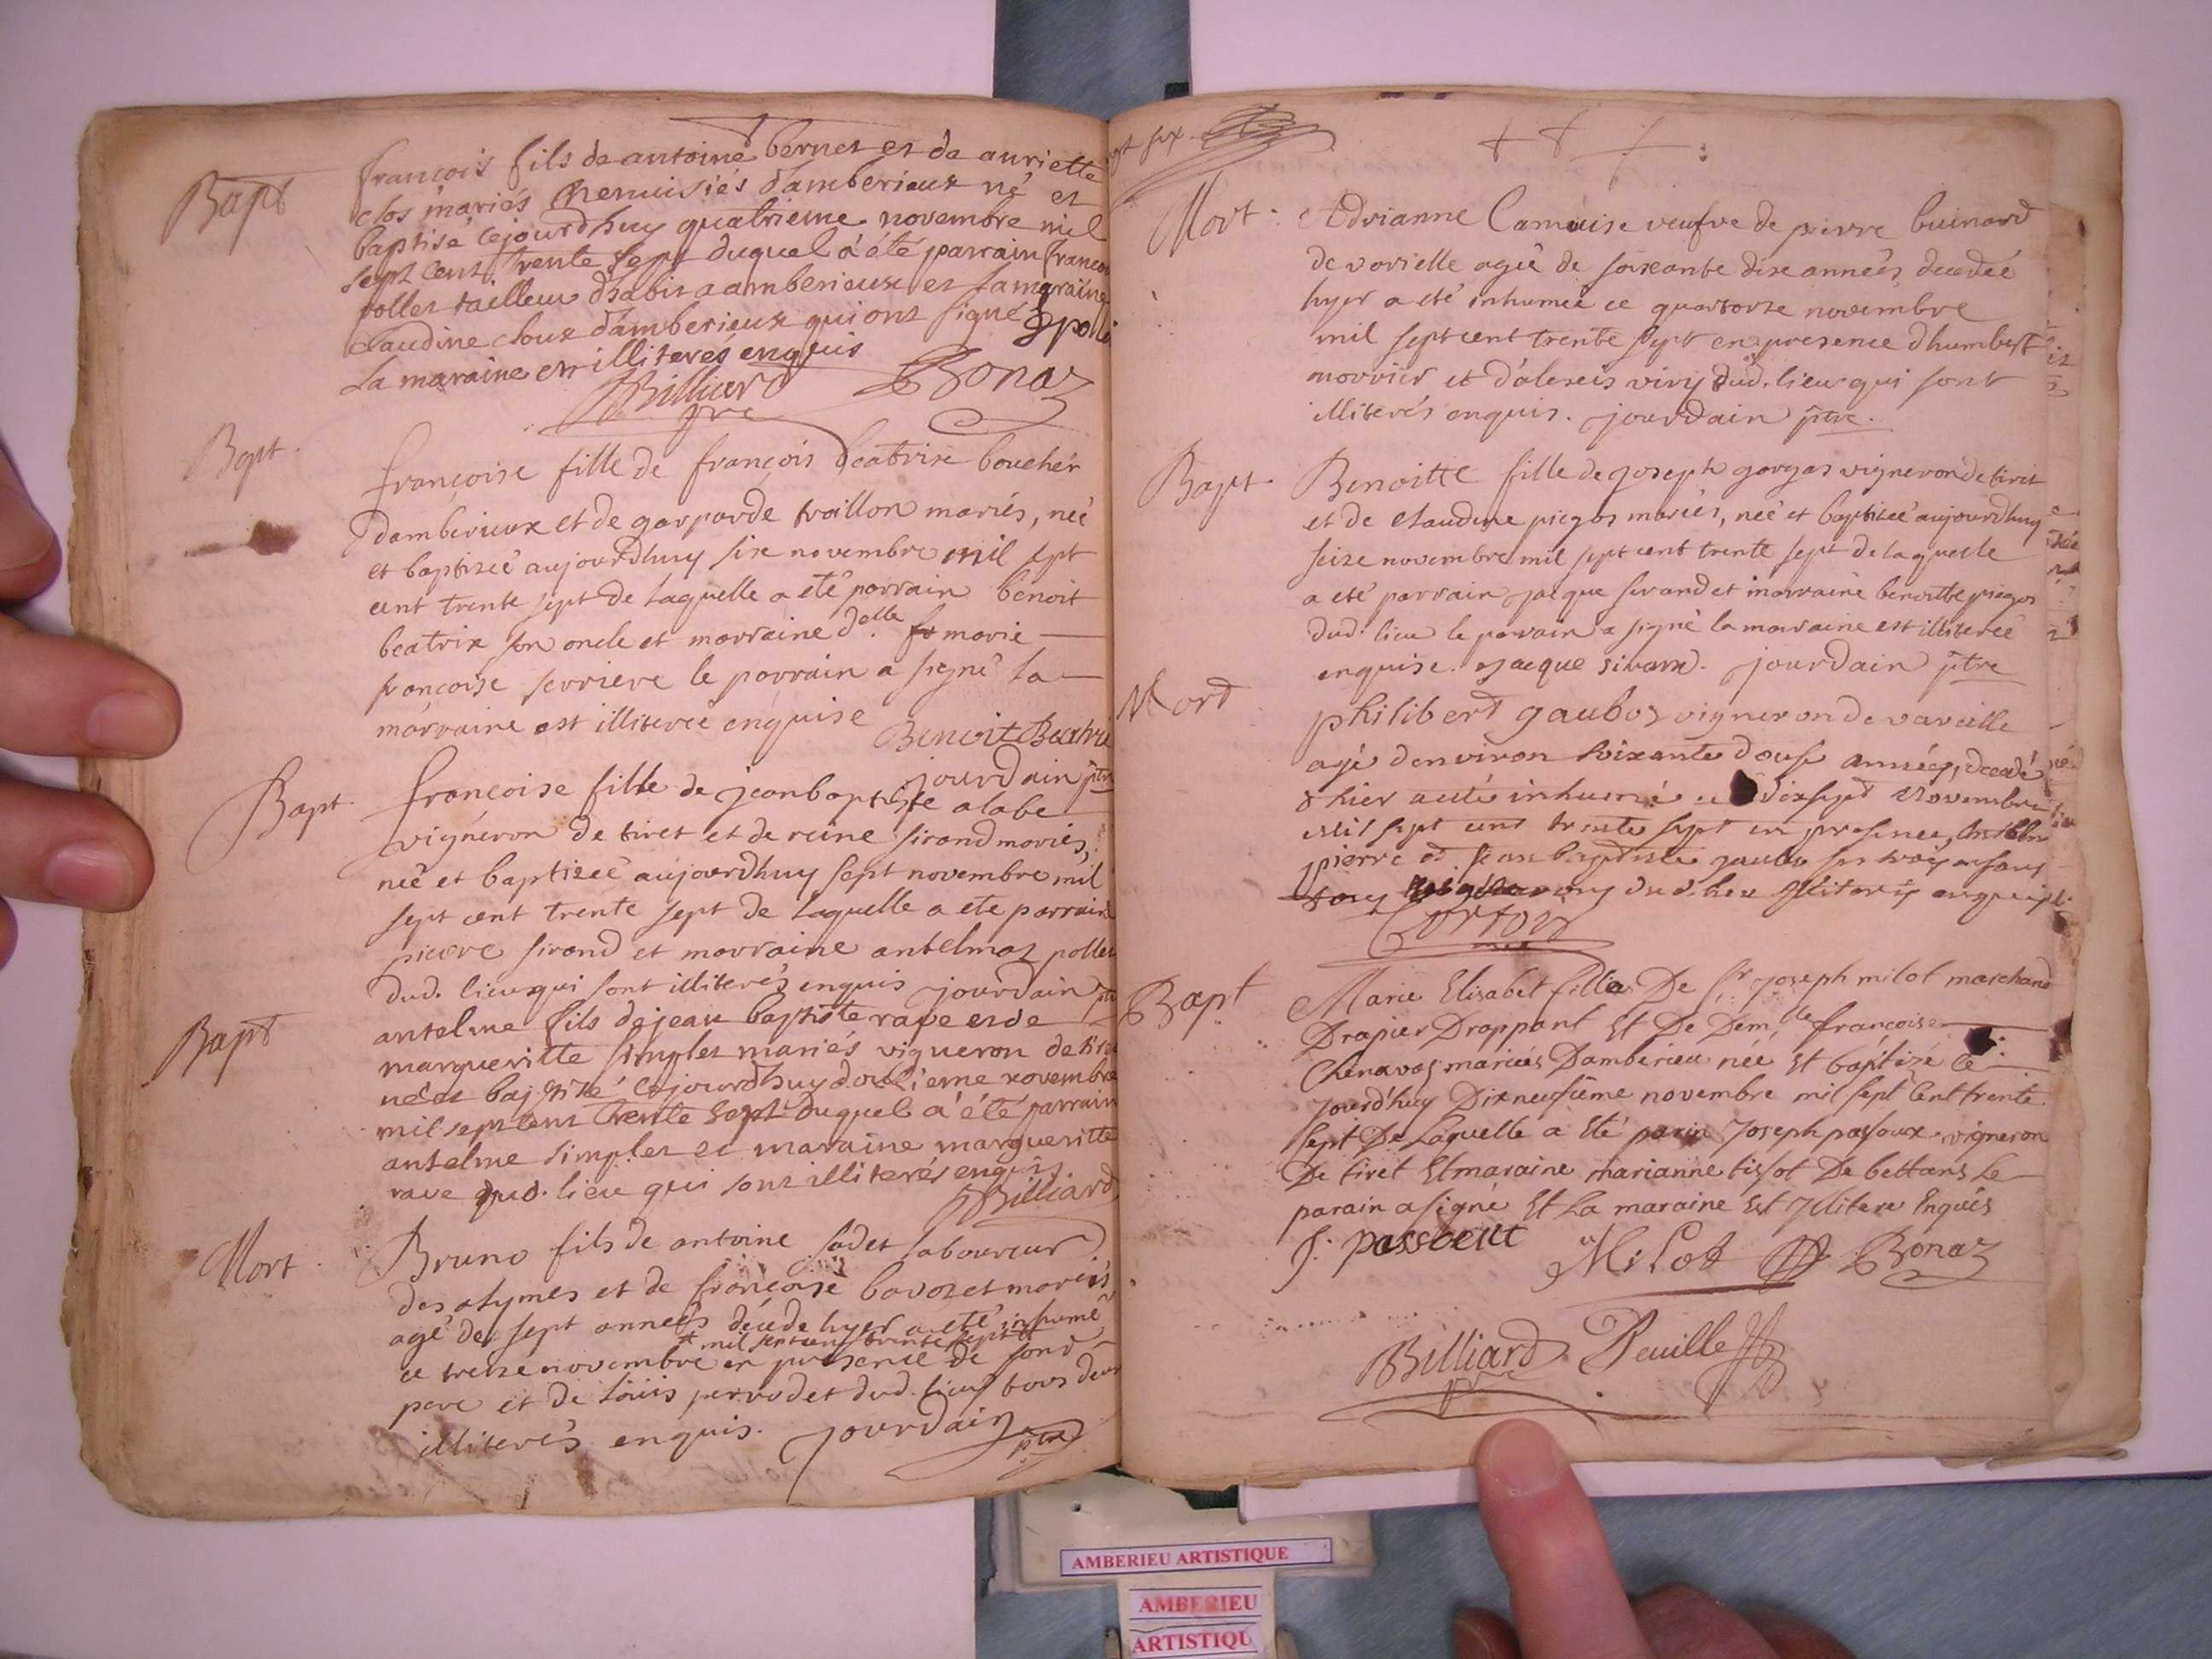 Bapt
françois fils de antoine bernet et de auriette
clos mariés menuisiés damberieux né et
baptisé cejourdhuy quatrieme novembre mil
sept cent trente sept duquel a été parrain françois
pollet tailleur dhabit a amberieux et la maraine
claudine choux damberieux qui ont signé
la maraine illiterés enquis
Billiard ptre Bonaz
Bapt.
françoise fille de françois beatrix boucher
damberieux et de gasparde traillon mariés, neé
et baptiseé aujourdhuy six novembre mil sept
cent trente sept de laquelle a eté parrain benoit
beatrix son oncle et marraine delle marie
françoise serriere le parrain a signé la
marraine est illitereé enquise Benoit Beatrix
jourdain ptre
Bapt.
françoise fille de jean baptiste alabe
vigneron de tiret et de reine sirand mariés,
neé et baptiseé aujourdhuy sept novembre mil
sept cent trente sept de laquelle a eté parrain
pierre sirand et marraine antelmaz pollet
dud. lieu qui sont illiterés enquis jourdain ptre
Bapt
antelme fils de jean baptiste rave et de
margueritte simplet mariés vigneron de tiret
né et baptizé cejourdhuy douzieme novembre
mil sept cent trente sept duquel a été parrain
antelme simplet et maraine margueritte
rave dud. lieu qui sont illiterés enquis.
Billiard
Mort.
Bruno fils de antoine sadet laboureur
des alymes et de françoise bavozet mariés
agé de sept anneés décédé hyer a eté inhumé
mil sept cent trente sept
ce treize novembre en presence de sond
pere et de loüis perrodet dud. lieu tous deux
illiterés enquis. jourdain ptre
six.
Mort.
Adrianne Camuise veufve de pierre buinard
de varielle ageé de soixante dix anneés decedeé
hyer a eté inhumeé ce quatorze novembre
mil sept cent trente sept en presence dhumbert
morrier et dalexis viry dud. lieu qui sont
illiterés enquis. jourdain ptre.
Bapt.
Benoitte fille de joseph gargas vigneron de tiret
et de claudine piegos mariés, neé et baptiseé aujourdhuy
seize novembre mil sept cent trente sept de laquelle
a eté parrain jacque sirand et marraine benoitte piegos
dud. lieu le parrain a signé la marraine est illitereé
enquise. jacque siran. jourdain ptre
Mort
philibert gauboz vigneron de vareille
agé denviron soixante douse années, decedé
hier a eté inhumé ce dixsept Novembre
mil sept cent trente sept en presence
pierre et jean baptiste ses trois enfans
tous dud. lieu illiterés enquis
Bapt
Marie Elisabet fille De Sr Joseph milot marchand
Drapier Drappant Et De Demlle françoise
Chenavas mariés Damberieu neé Et baptizé ce
jourd'huy Dixneufième novembre mil sept Cent trente
sept De Laquelle a Eté parin Joseph passoux vigneron
De tiret Et maraine marianne tissot De bettans Le
parain a signé Et La maraine Est Illitere Enquis
J. passeeut Milot Bonaz
Billiard ptre Peuille
AMBERIEU ARTISTIQUE
AMBERIEU
ARTISTIQU